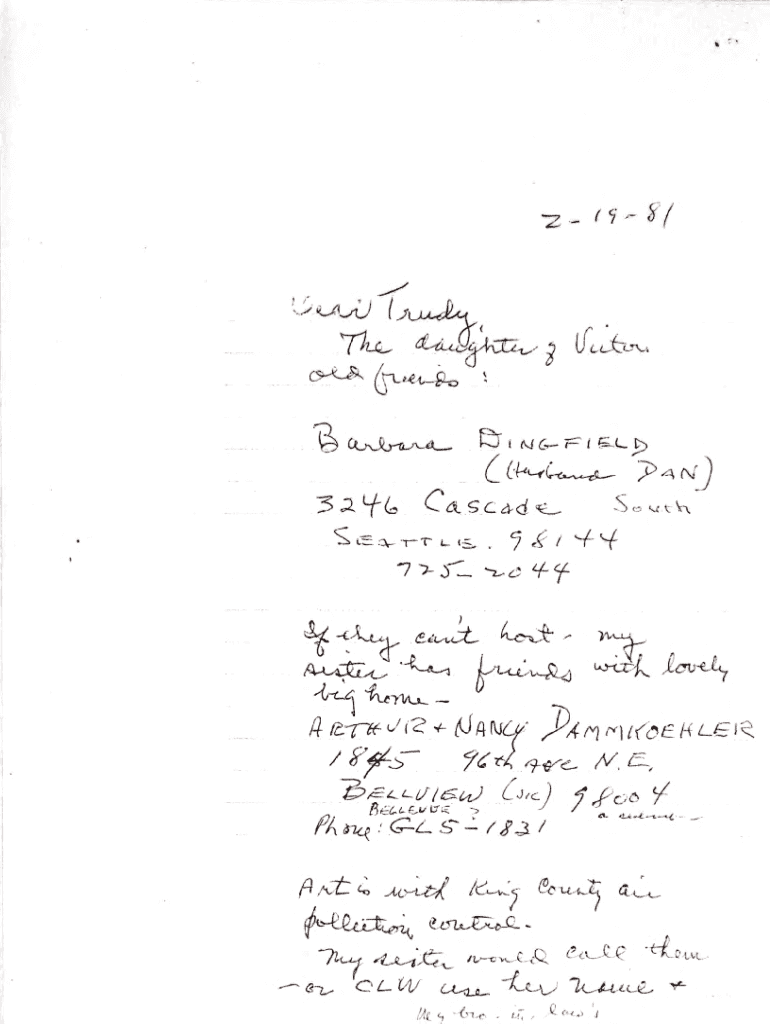 2-19-81
Dear Trudy,
The daughter of Victor
old friends :
Barbara DINGFIELD
(Husband DAN)
3246 Cascade South
SEATTLE. 98144
725-2044
If they can't host - my
sister has friends with lovely
big home -
ARTHUR + NANCY DAMMKOEHLER
1845 96th Ave N.E.
BELLVIEW (sic) 98004
BELLEVUE ?
Phone: GL5-1831
Art is with King County air
pollution control.
My sister would call them
- or CLW use her name +
my bro. in law's